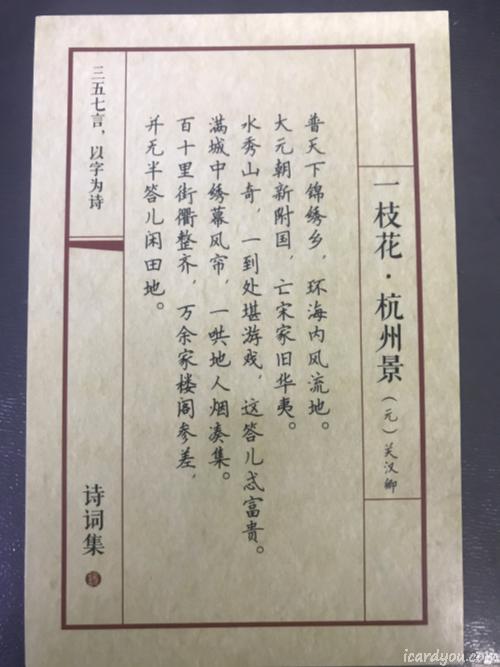 一枝花·杭州景（元）关汉卿
普天下锦绣乡，环海内风流地。
大元朝新附国，亡宋家旧华夷。
水秀山奇，一到处堪游戏，这答儿忒富贵。
满城中绣幕风帘，一哄地人烟凑集。
百十里街衢整齐，万余家楼阁参差，
并无半答儿闲田地。
三五七言，以字为诗
诗词集
icardyou.com